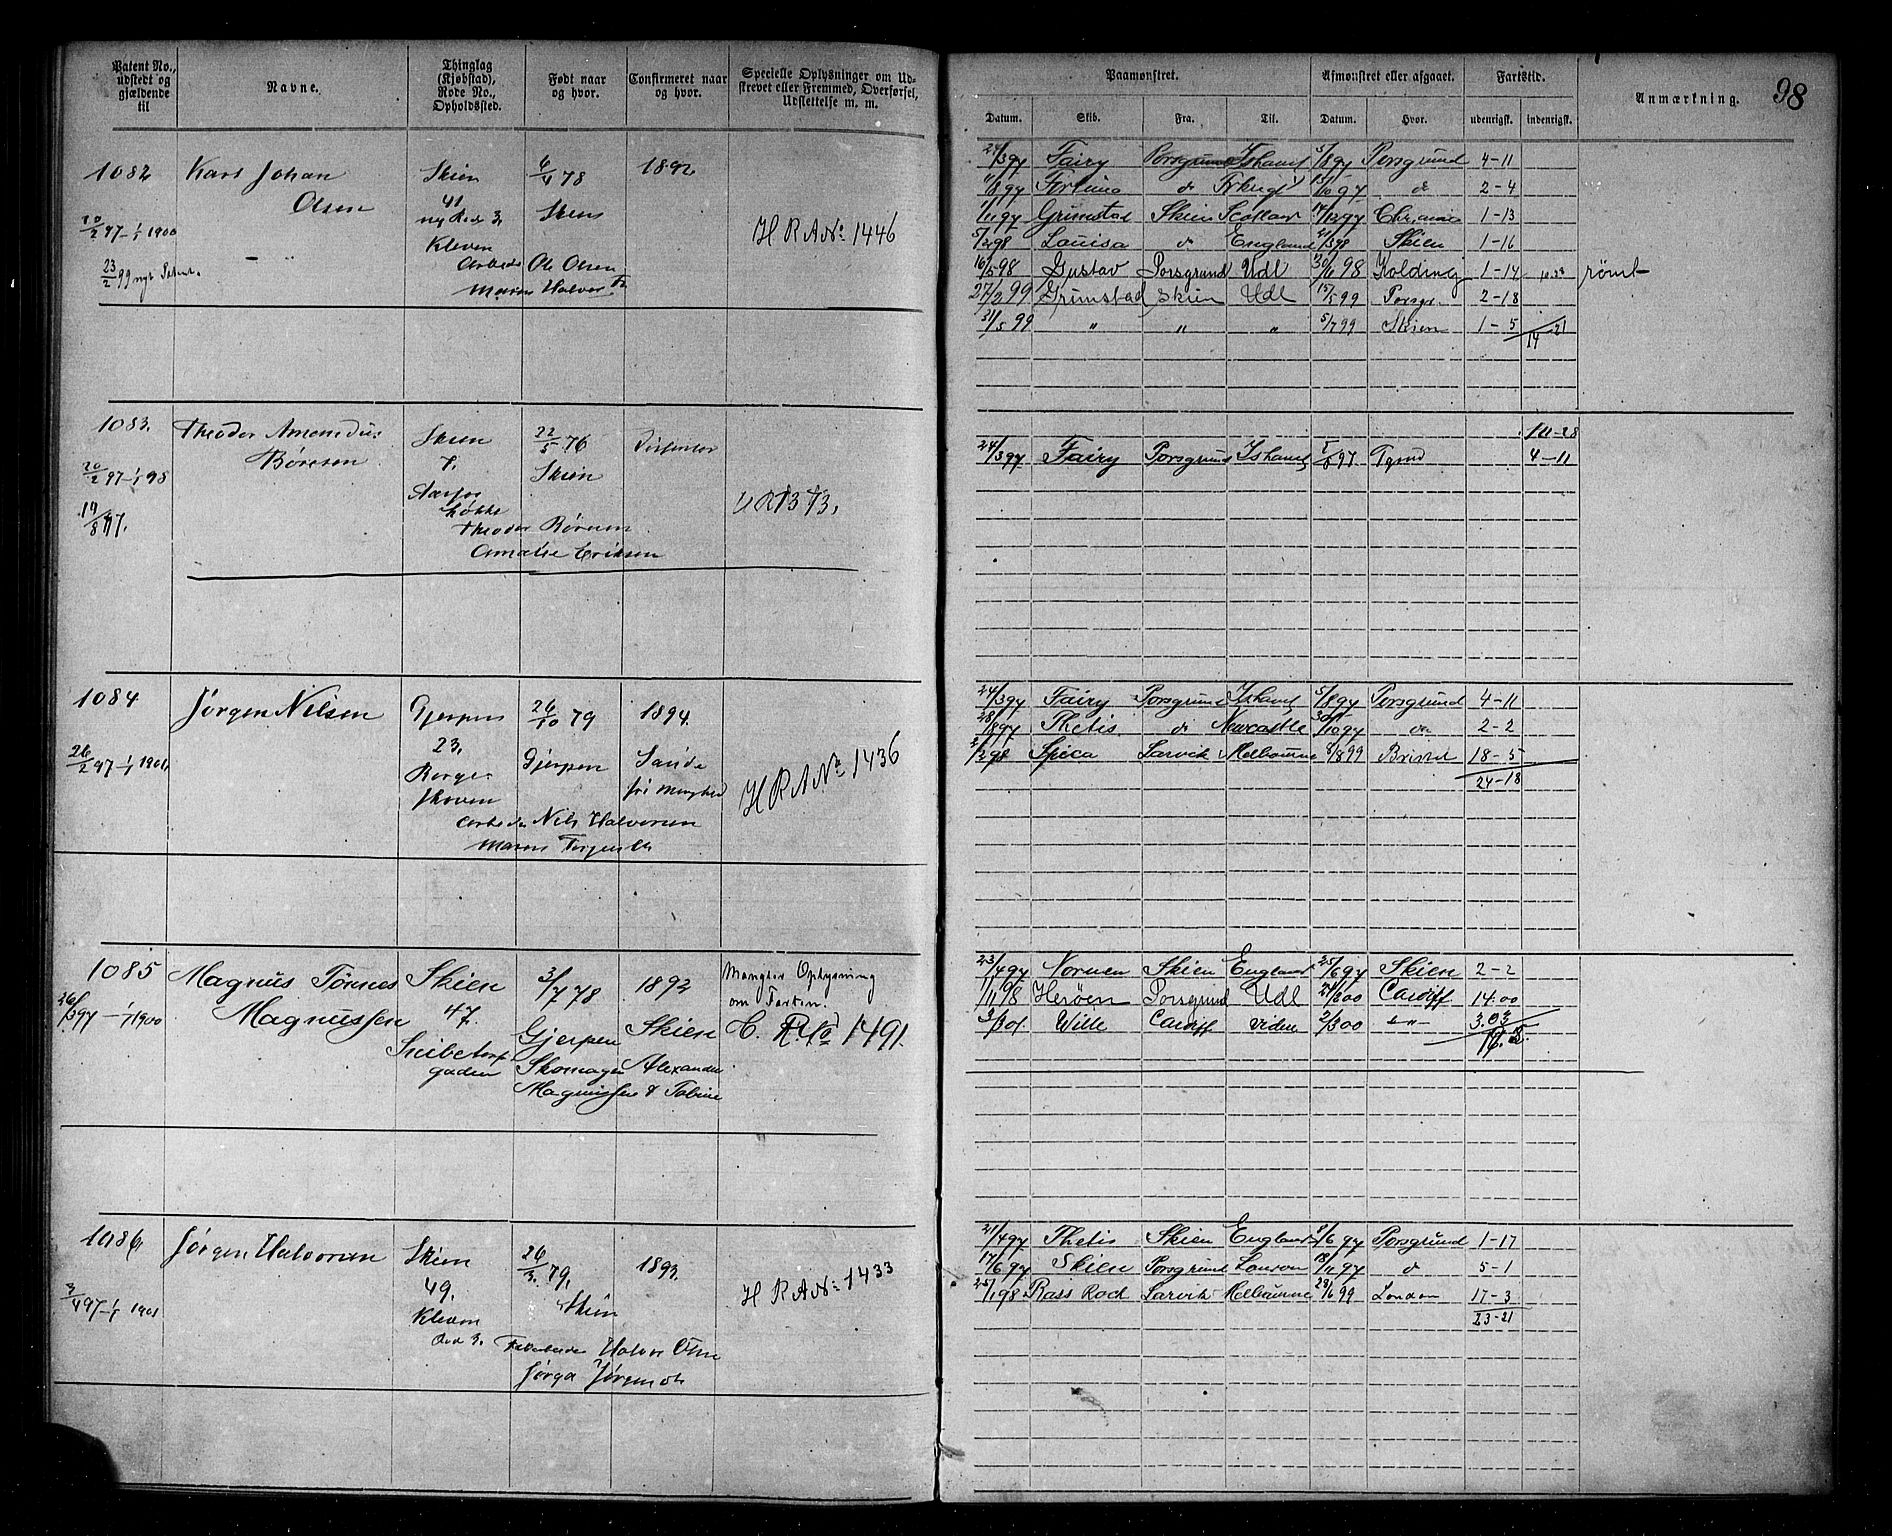 98
Patent No., udstedt og gjældende til
Navne.
Thinglag (Kjøbstad), Rode No., Opholdssted.
Født naar og hvor.
Confirmeret naar og hvor.
Specielle Oplysninger om Udskrevet eller Fremmed, Overførsel, Udslettelse m. m.
Paamønstret.
Afmønstret eller afgaaet.
Fartstid.
Anmærkning.
Datum. Skib. Fra. Til. Datum. Hvor. udenrigsk. indenrigsk.
1082 Karl Johan Skien 6/4 78 1892
Olsen 41 Skien
20/2 97 - 1/1 1900 ny Rode 3 H R A No 1446
Kleven
23/2 99 nyt Patent. Arbeider Ole Olsen
Maren Halvors
24/3 97 Fairy Porsgrund Ishavet 5/8 97 Porsgrund 4-11
11/8 97 Fortuna do 15/10 97 do 2-4
1/11 97 Grimstad Skien Scotland 14/12 97 1-13
5/2 98 Louisa do England 21/3 98 Skien 1-16
16/5 98 Gustav Porsgrund Udl 30/6 98 Kolding 1-14 rømt
27/2 99 Grimstad Skien Udl 15/5 99 Porsgr. 2-18
31/5 99 " " " 5/7 99 Skien 1-5
14 21
1083. Theodor Amandus Skien 22/5 76
Børesen 7. Skien
20/2 97 - 1/1 98
19/8 97. Løkke U R 1373.
Theodor Børesen
Eriksen
10-28
24/3 97 Fairy Porsgrund Ishavet 5/8 97 4-11
1084 Jørgen Nilsen Gjerpen 26/10 79 1894
23. Gjerpen Sande
26/2 97 - 1/1 1901 Borge- H R A No 1436
skoven
Arbeider Nils Halvorsen
Maren
24/3 97 Fairy Porsgrund Ishavet 5/8 97 Porsgrund 4-11
28/8 97 Thetis do Newcastle 30/10 97 do 2-2
2/2 98 Spica Larvik Melbourne 8/8 99 Bristol 18-5
24-18
1085 Magnus Tønnes Skien 3/7 78 1892 Mangler Oplysning
om Farten.
26/3 97 - 1/1 1900 Magnussen 47. Gjerpen Skien C. R. No 1491.
Skomager Alexander
gaden Magnussen & Tobine
23/4 97 Nornen Skien England 25/6 97 Skien 2-2
1/11 98 Herøen Porsgrund Udl Cardiff 14.00
Wille Cardiff videre 2/3 00 " 3.03
1086 Jørgen Halvorsen Skien 26/3. 79. 1893.
49. Skien H R A No 1433
3/4 97 - 1/1 1901 Kleven
Rod 3. Halvor Olsen
Jørga Jørgensdtr
21/4 97 Thetis Skien England 8/6 97 Porsgrund 1-17
17/6 97 Skien Porsgrund 18/11 97 do 5-1
25/1 98 Larvik Melbourne 28/6 99 London 17-3
23-21